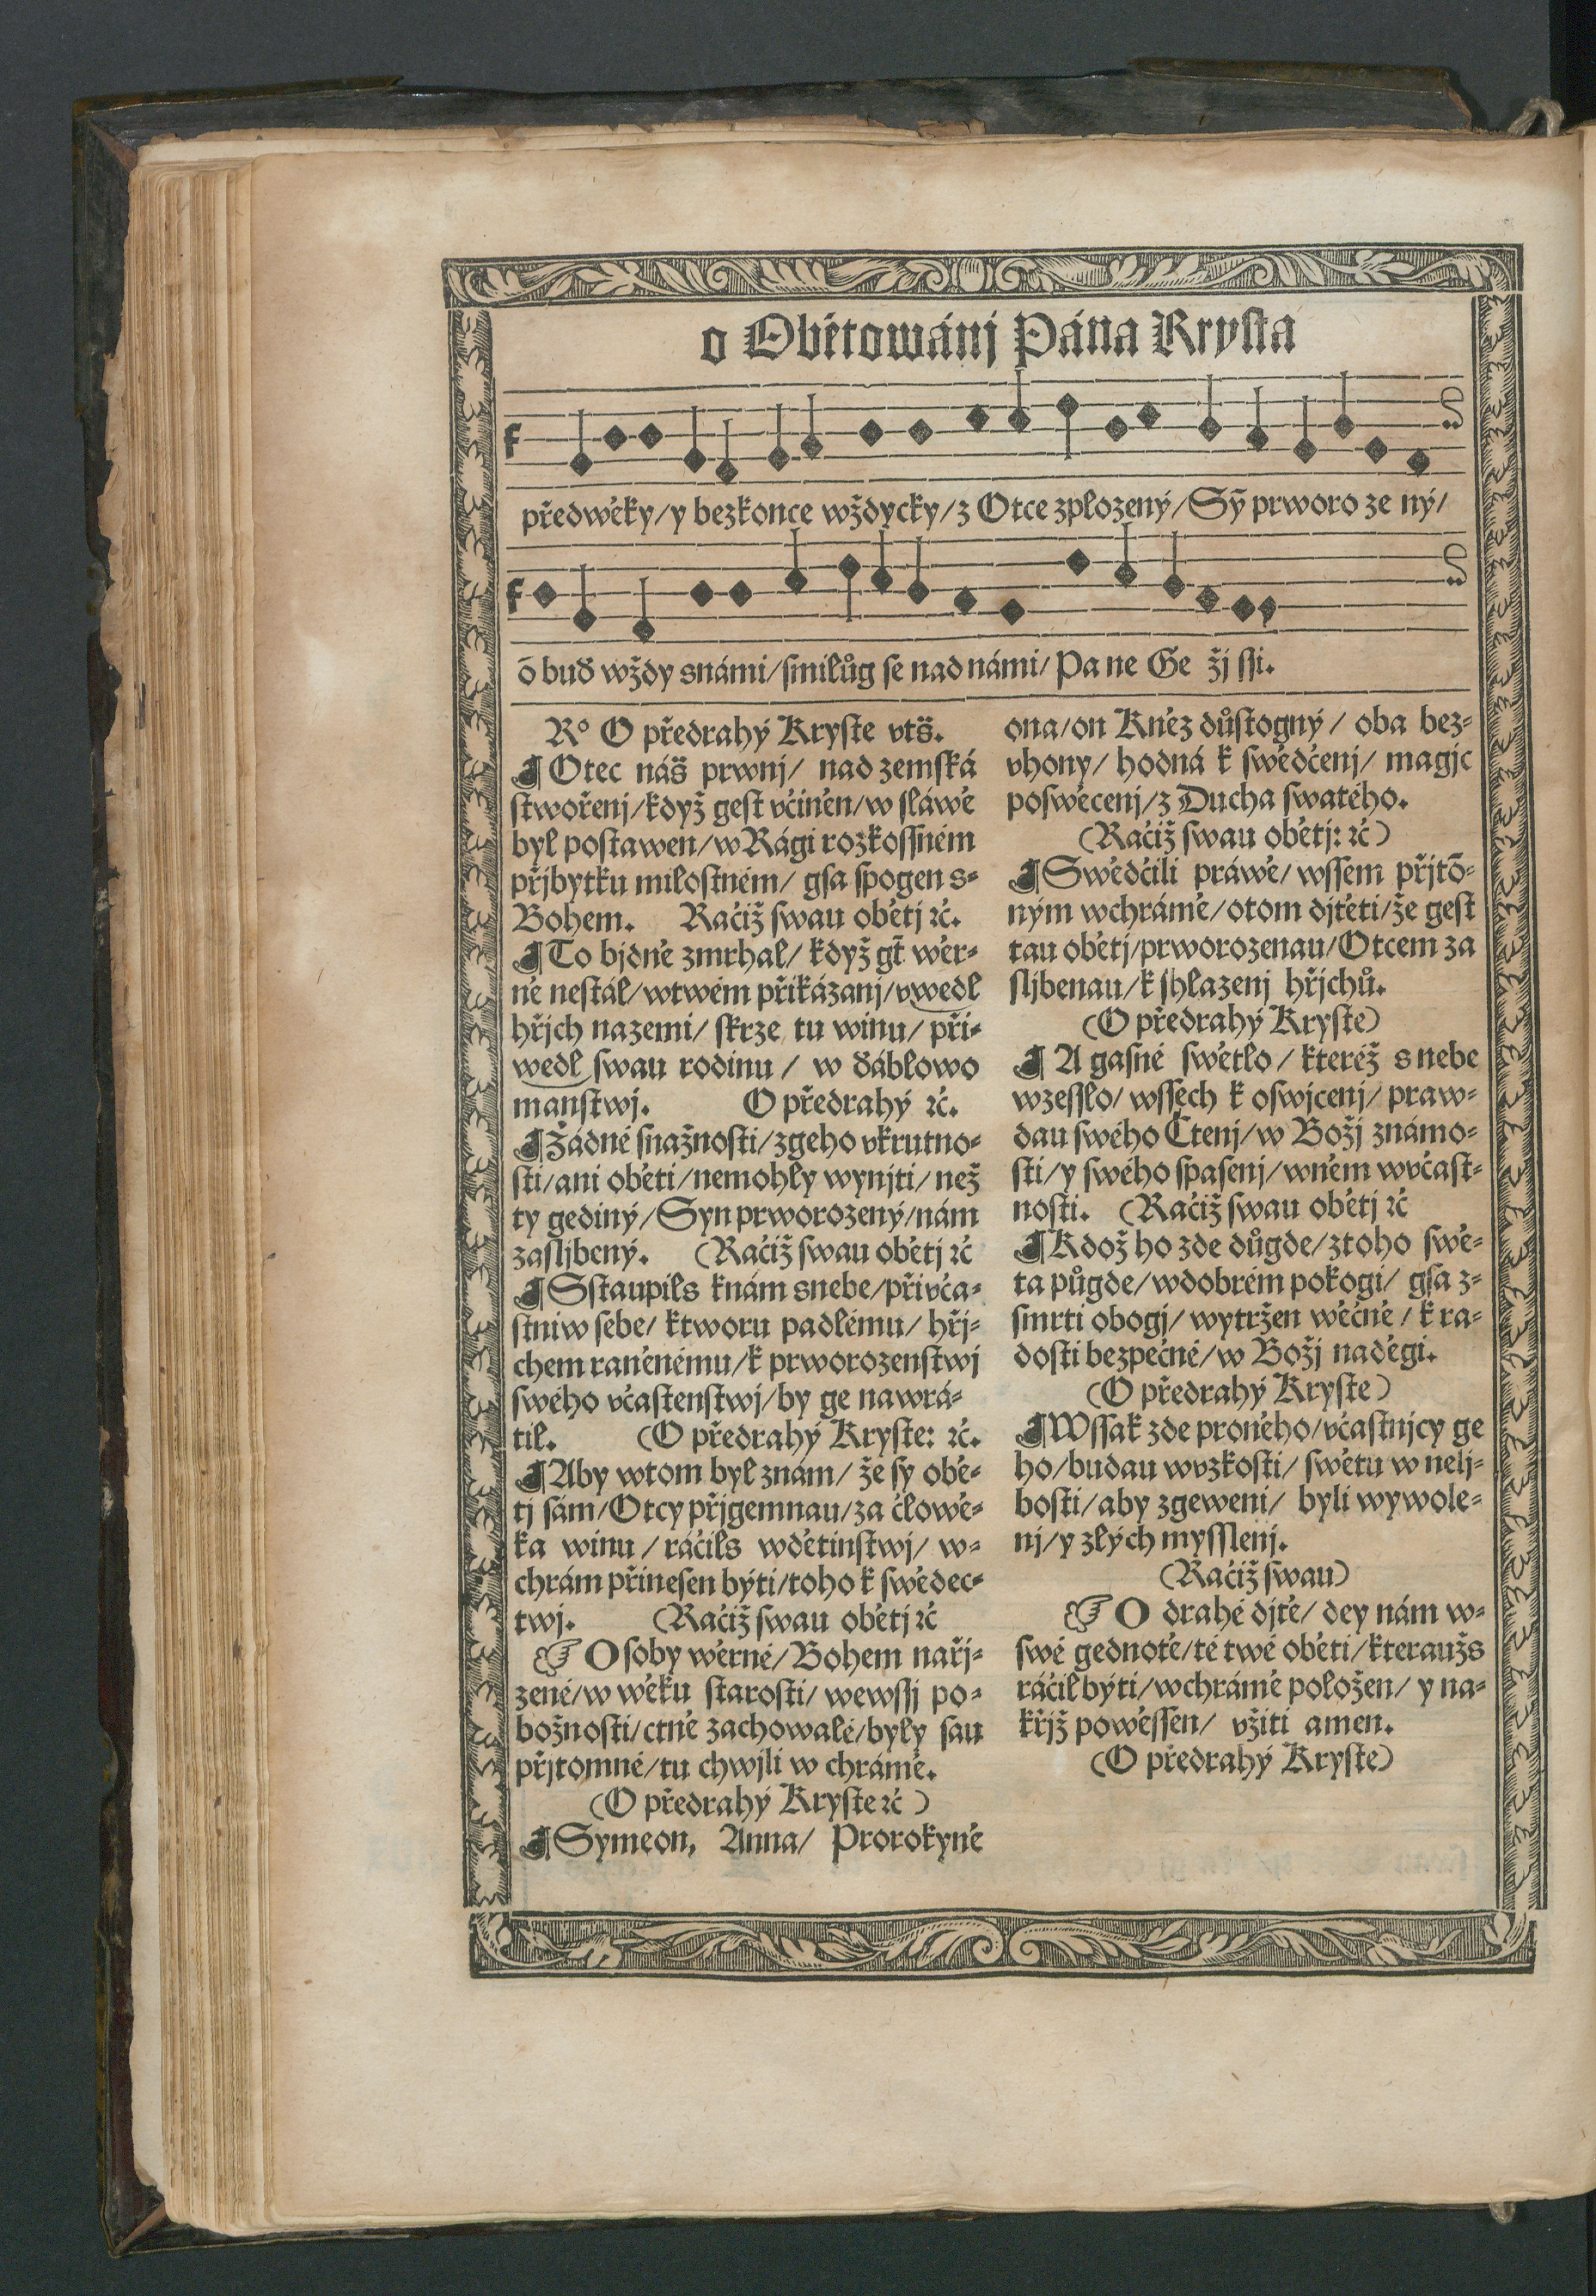 o Obětowánj Pána Krysta
předwěky/y bezkonce wždycky/z Otce zplozený/Sȳ prworo ze ný/
ō buď wždy snámi/smilůg se nad námi/Pa ne Ge žj ssi.
R° O předrahý Kryste vts̈.
¶ Otec nás̈ prwnj/ nad zemská
stwořenj/když gest včiněn/w sláwě
byl postawen/wRági rozkossném
přjbytku milostném/ gsa spogen s-
Bohem. Račiž swau obětj ꝛč.
¶ To bjdně zmrhal/ když gt̄ wěr-
ně nestál/wtwém přikázanj/vwedl
hřjch nazemi/ skrze tu winu/ při-
wedl swau rodinu / w ďáblowo
manstwj. O předrahý ꝛč.
¶ Žádné snažnosti/zgeho vkrutno-
sti/ani oběti/nemohly wynjti/ než
ty gediný/Syn prworozený/nám
zasljbený. (Račiž swau obětj ꝛč
¶ Sstaupils knám snebe/přivča-
stniw sebe/ ktworu padlému/ hřj-
chem raněnému/k prworozenstwj
swého včastenstwj/by ge nawrá-
til. (O předrahý Kryste: ꝛč.
¶ Aby wtom byl znám/ že sy obě-
tj sám/Otcy přjgemnau/za člowě-
ka winu / ráčils wdětinstwj/ w-
chrám přinesen býti/toho k swědec-
twj. (Račiž swau obětj ꝛč
☞ Osoby wěrné/Bohem nařj-
zené/w wěku starosti/ wewssj po-
božnosti/ctně zachowalé/byly sau
přjtomné/tu chwjli w chrámě.
(O předrahý Kryste ꝛč )
¶ Symeon, Anna/ Prorokyně
ona/on Kněz důstogný / oba bez-
vhony/ hodná k swědčenj/ magjc
poswěcenj/z Ducha swatého.
(Račiž swau obětj: ꝛč)
¶ Swědčili práwě/ wssem přjtō-
ným wchrámě/otom djtěti/že gest
tau obětj/prworozenau/Otcem za
sljbenau/k shlazenj hřjchů.
(O předrahý Kryste)
¶ A gasné swětlo/ kteréž s nebe
wzesslo/ wssech k oswjcenj/ praw-
dau swého Čtenj/w Božj známo-
sti/y swého spasenj/wněm wvčast-
nosti. (Račiž swau obětj ꝛč
¶ Kdož ho zde důgde/ztoho swě-
ta půgde/wdobrém pokogi/ gsa z-
smrti obogj/ wytržen wěčné / k ra-
dosti bezpečné/w Božj naděgi.
(O předrahý Kryste)
¶ Wssak zde proněho/včastnjcy ge
ho/budau wvzkosti/ swětu w nelj-
bosti/aby zgeweni/ byli wywole-
nj/y zlých mysslenj.
(Račiž swau)
☞ O drahé djtě/ dey nám w-
swé gednotě/té twé oběti/kteraužs
ráčil býti/wchrámě položen/ y na-
křjž powěssen/ vžiti amen.
(O předrahý Kryste)